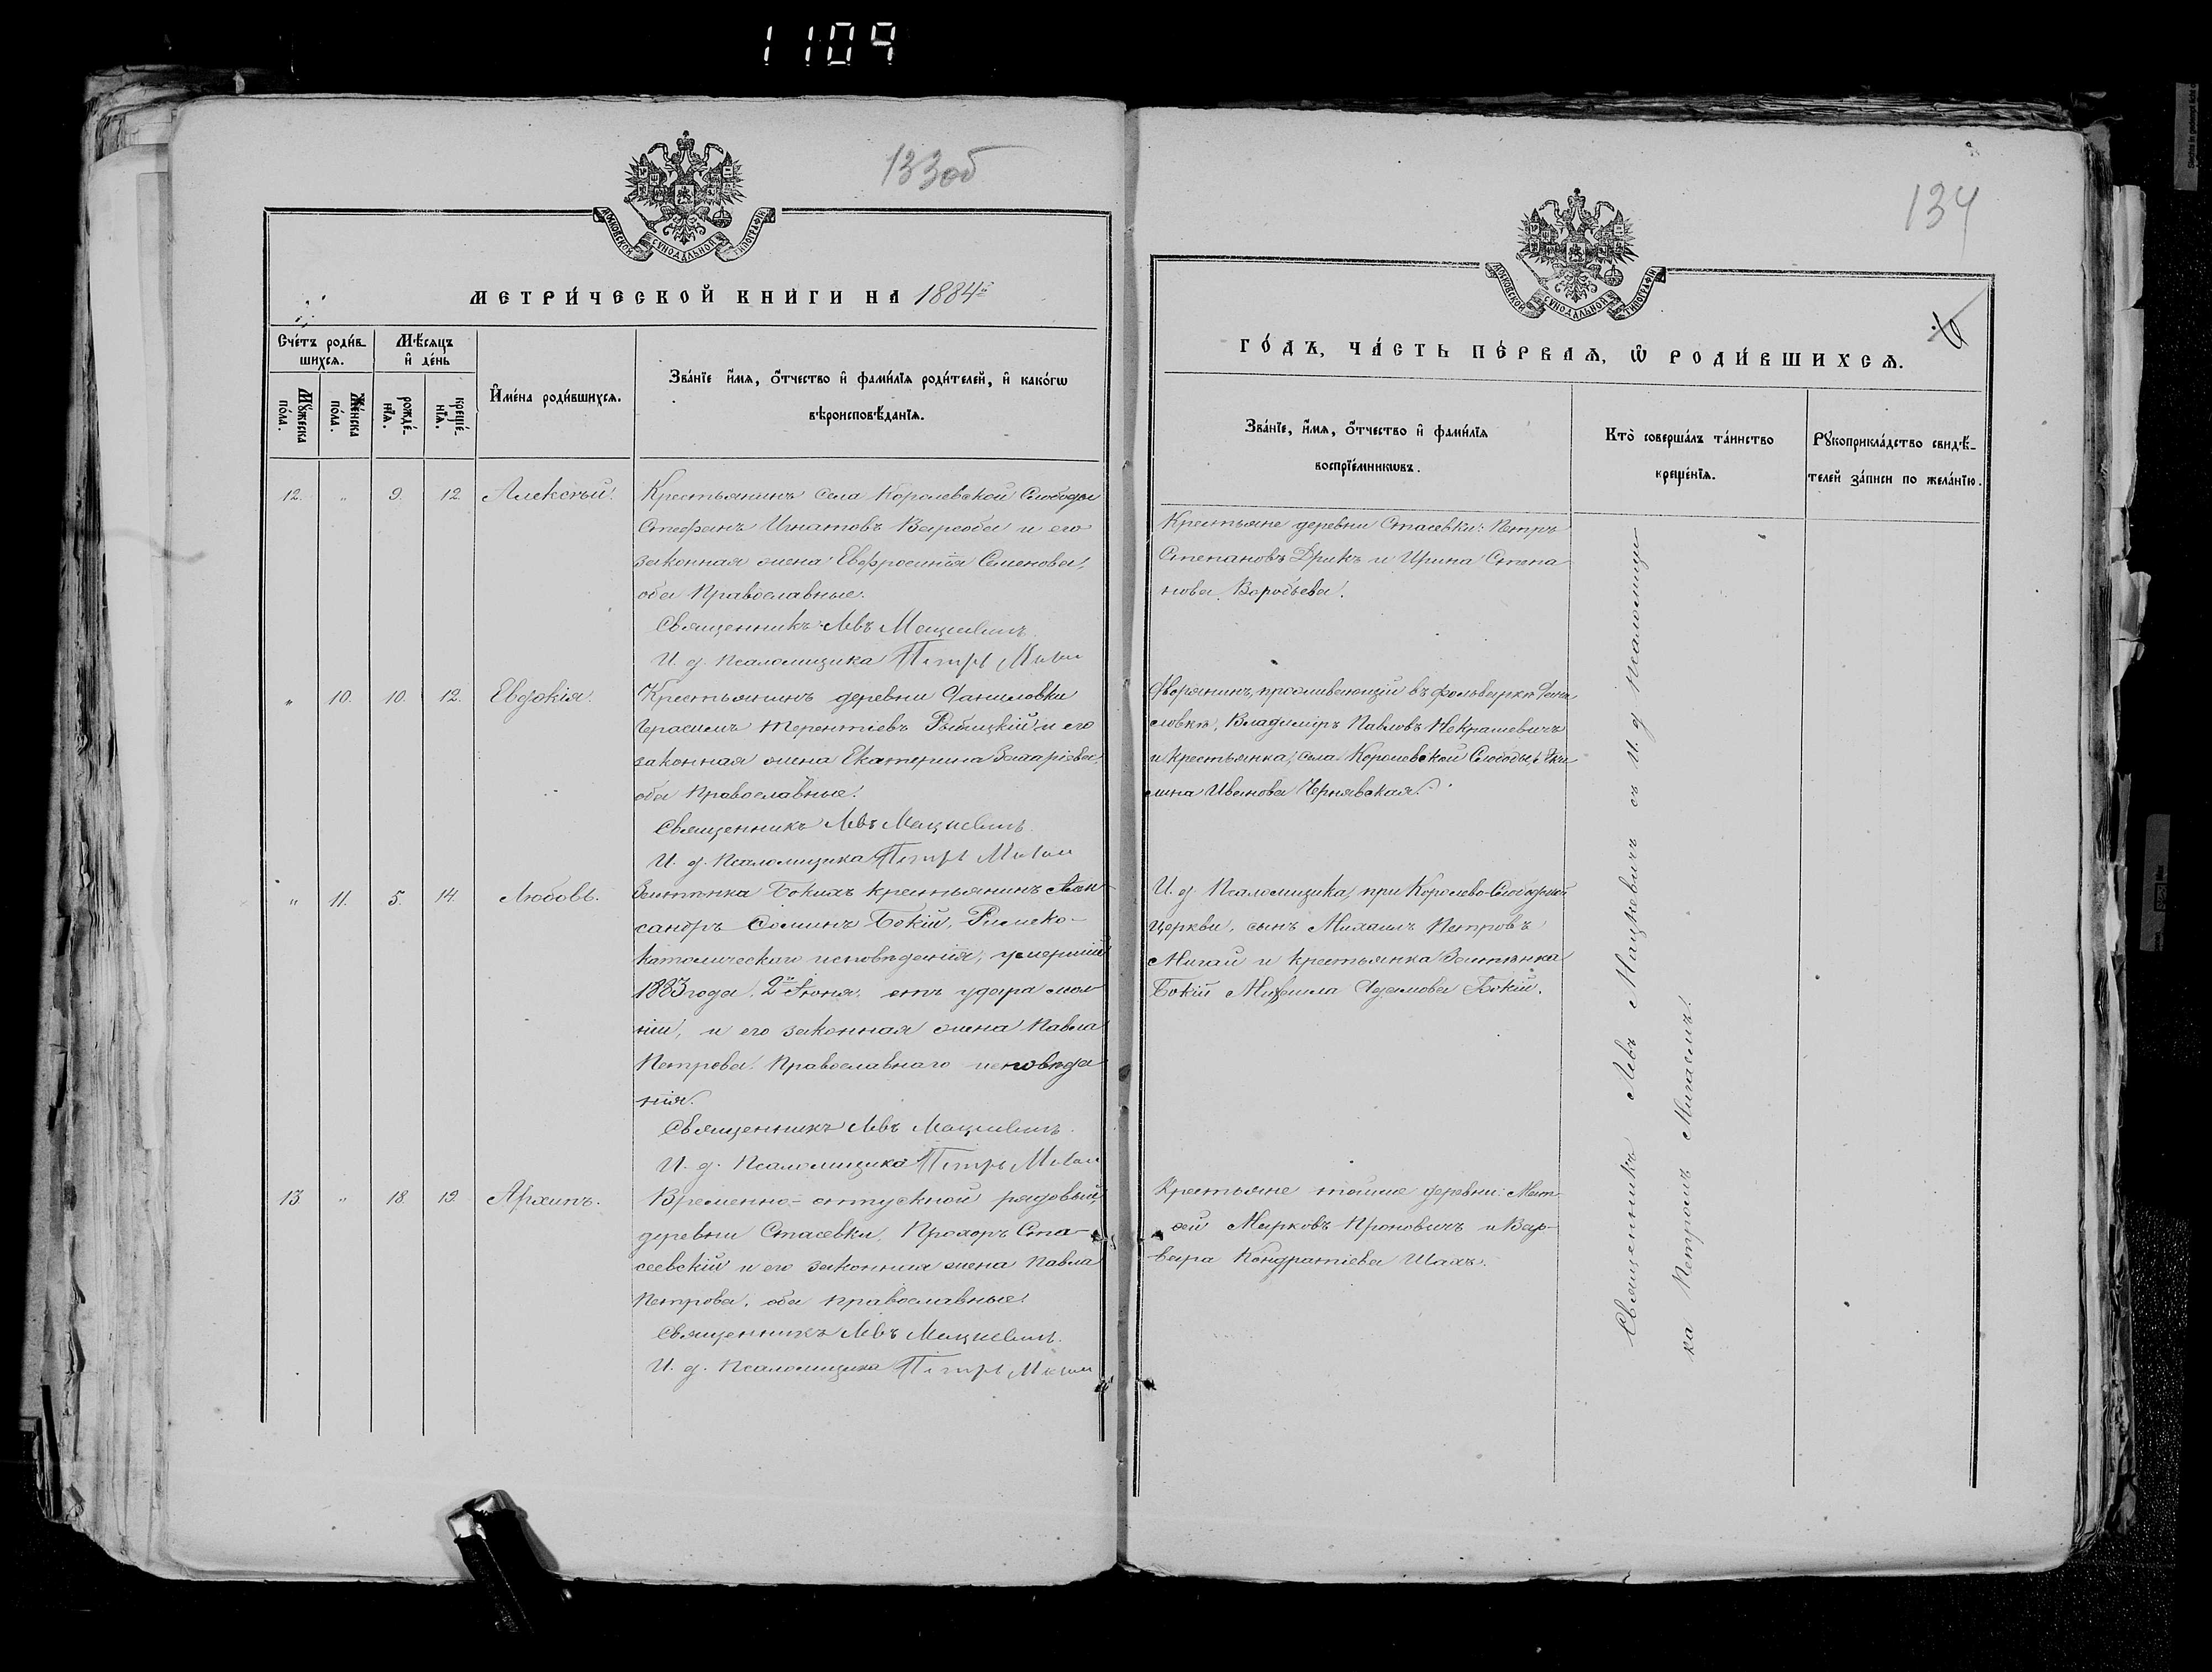 1109
133об
МОСКОВСКОЙ СѴНОДАЛЬНОЙ ТИПОГРАФІИ
МЕТРИ́ЧЕСКОЙ КНИГИ НА 1884й
Сче́тъ роди́в-
шихсѧ.
Мѣ́сѧцъ
и҆ де́нь
Мꙋ́жеска
по́ла.
Же́нска
по́ла.
рожде́-
нїѧ.
креще́-
нїѧ.
И҆мена̀ роди́вшихсѧ.
Зва́нїе и҆́мѧ, ѻ҆́тчество и҆ фами́лїѧ роди́телей, и҆ како́гѡ
вѣроисповѣ́данїѧ.
12. " 9. 12 Алексѣй.
Крестьянинъ села Королевской Слободы
Стефанъ Игнатовъ и его
законная жена Евфросинія Семенова,
оба Православные.
Священникъ Левъ Мацкевичъ
И. д. Псаломщика Петръ Мигай
" 10. 10. 12. Евдокія.
Крестьянинъ деревни Даниловки
Герасимъ Терентіевъ Рыбицкій и его
законная жена Екатерина Захаріева,
оба Православные.
Священникъ Левъ Мацкевичъ
И. д. Псаломщика Петръ Мигай
" 11. 5. 14. Любовь.
Застѣнка Бокіихъ крестьянинъ Алек-
сандръ Ѳоминъ Бокій, Римско-
католическаго исповѣданія, умершій
1883 года 2го Іюня, отъ удара мол-
ніи, и его законная жена Павла
Петрова Православнаго исповѣда
нія.
Священникъ Левъ Мацкевичъ
И. д. Псаломщика Петръ Мигай
13 " 18. 19. Архипъ.
Временно-отпускной рядовый
деревни Стасевки, Прохоръ Ста-
севскій и его законная жена Павла
Петрова, оба православные.
Священникъ Левъ Мацкевичъ
И. д. Псаломщика Петръ Мигай
134
МОСКОВСКОЙ СѴНОДАЛЬНОЙ ТИПОГРАФІИ
ГО́ДЪ, ЧА́СТЬ ПЕ́РВАѦ, Ѡ҆ РОДИ́ВШИХСѦ.
Зва́нїе, и҆́мѧ, ѻ҆́тчество и҆ фами́лїѧ
воспрїе́мникѡвъ.
Кто̀ соверша́лъ та́инство
креще́нїѧ.
Рꙋкоприкла́дство свидѣ́-
телей за́писи по жела́нїю.
Крестьяне деревни Стасевки: Петръ
Степановъ Дрикъ и Ирина Степа
нова Воробьева.
Дворянинъ, проживающій въ фольваркѣ
Владиміръ Павловъ Некрашевичъ
и крестьянка, села Королевской Слободы, Аки
лина Иванова Чернявская.
И. д. Псаломщика, при Королево-Слободской
церкви, сынъ Михаилъ Петровъ
Мигай и крестьянка Застѣнка
Бокій Адамова Бокій.
Крестьяне тойже деревни: Мат-
ѳей Марковъ Проновичъ и Вар-
вара Кондратіева Шахъ.
Священникъ Левъ Мацкевичъ съ и. д. псаломщи
ка Петромъ Мигаемъ.